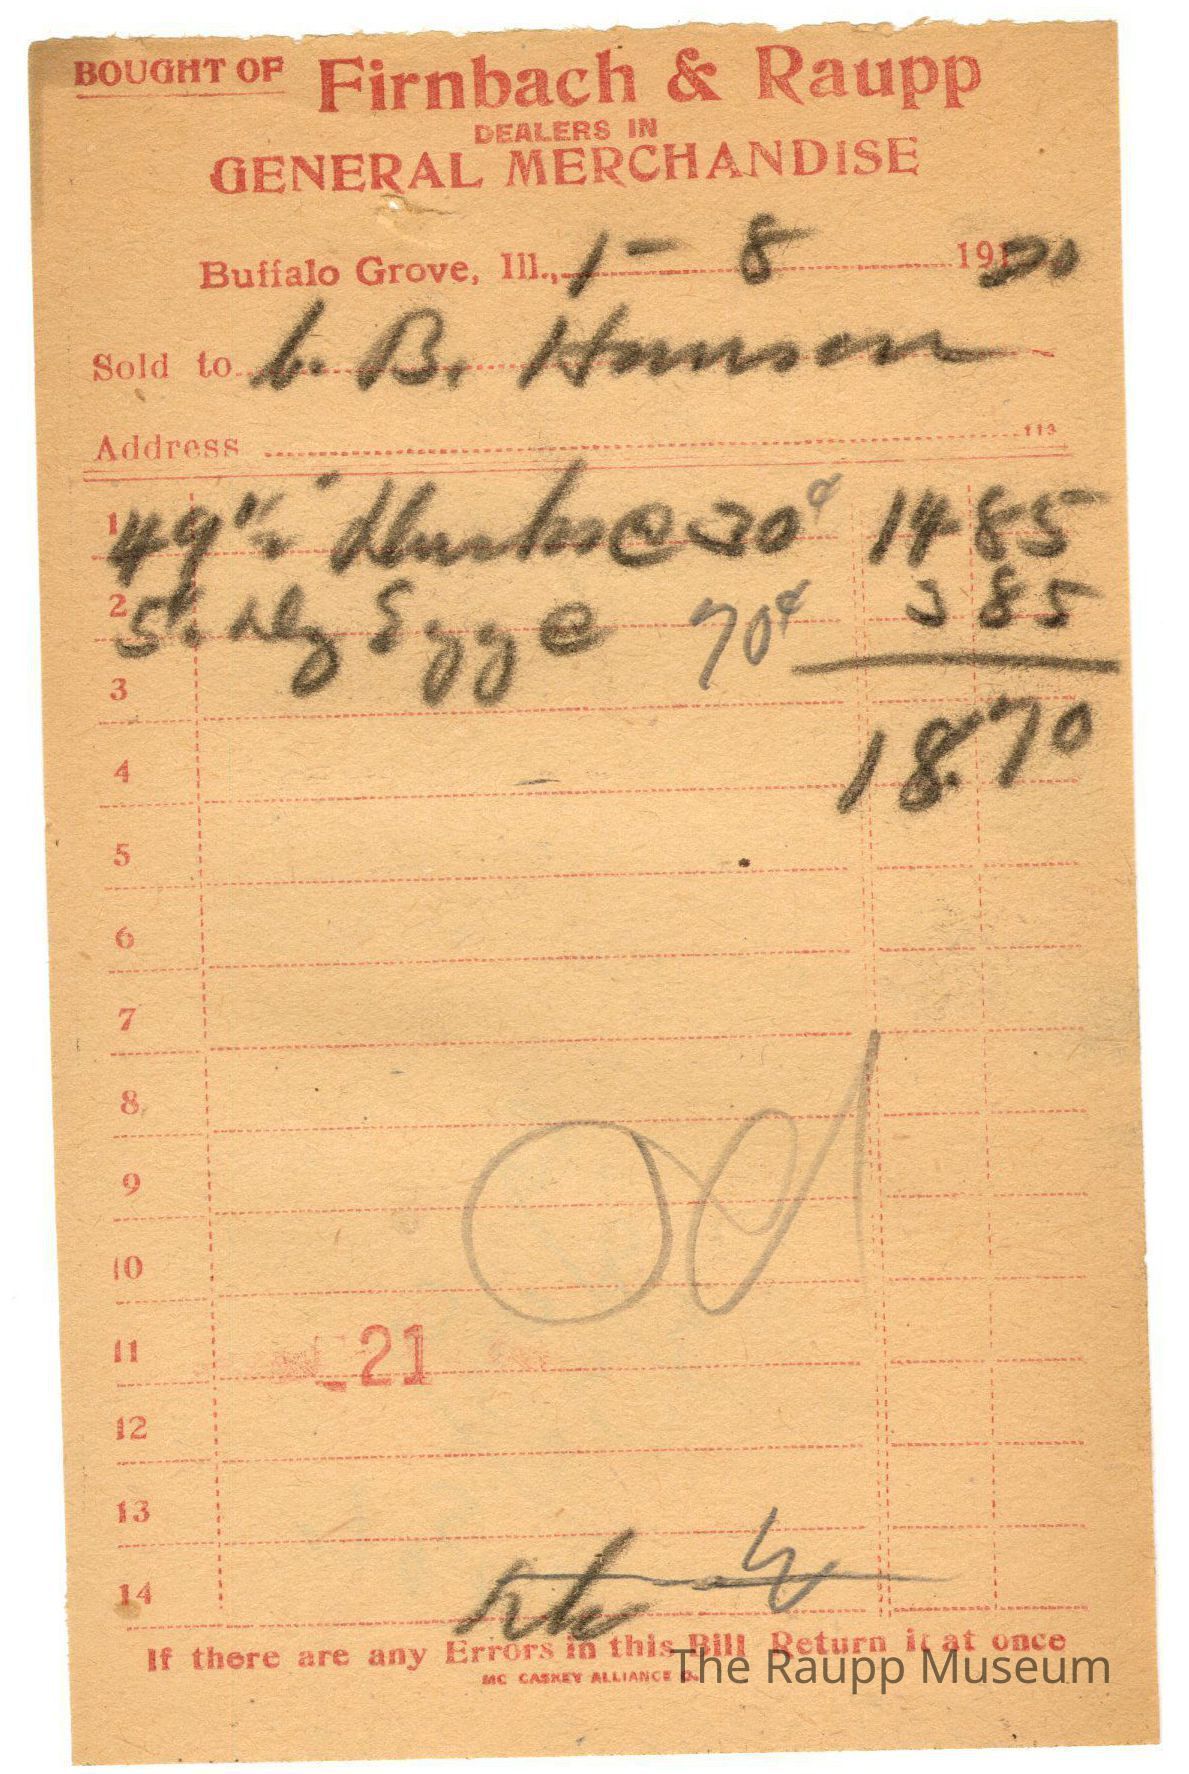 BOUGHT OF Firnbach & Raupp
DEALERS IN
GENERAL MERCHANDISE
Buffalo Grove, Ill., 1-8 1920
Sold to B. Hansen
Address 113
1 49½ @ 30¢ 14 85
2 5½ Dz Eggs @ 70¢ 3 85
3
18.70
4
5
6
7
8
9
10
11
21
12
13
14
If there are any Errors in this Bill Return it at once
MC CASKEY ALLIANCE O.
The Raupp Museum